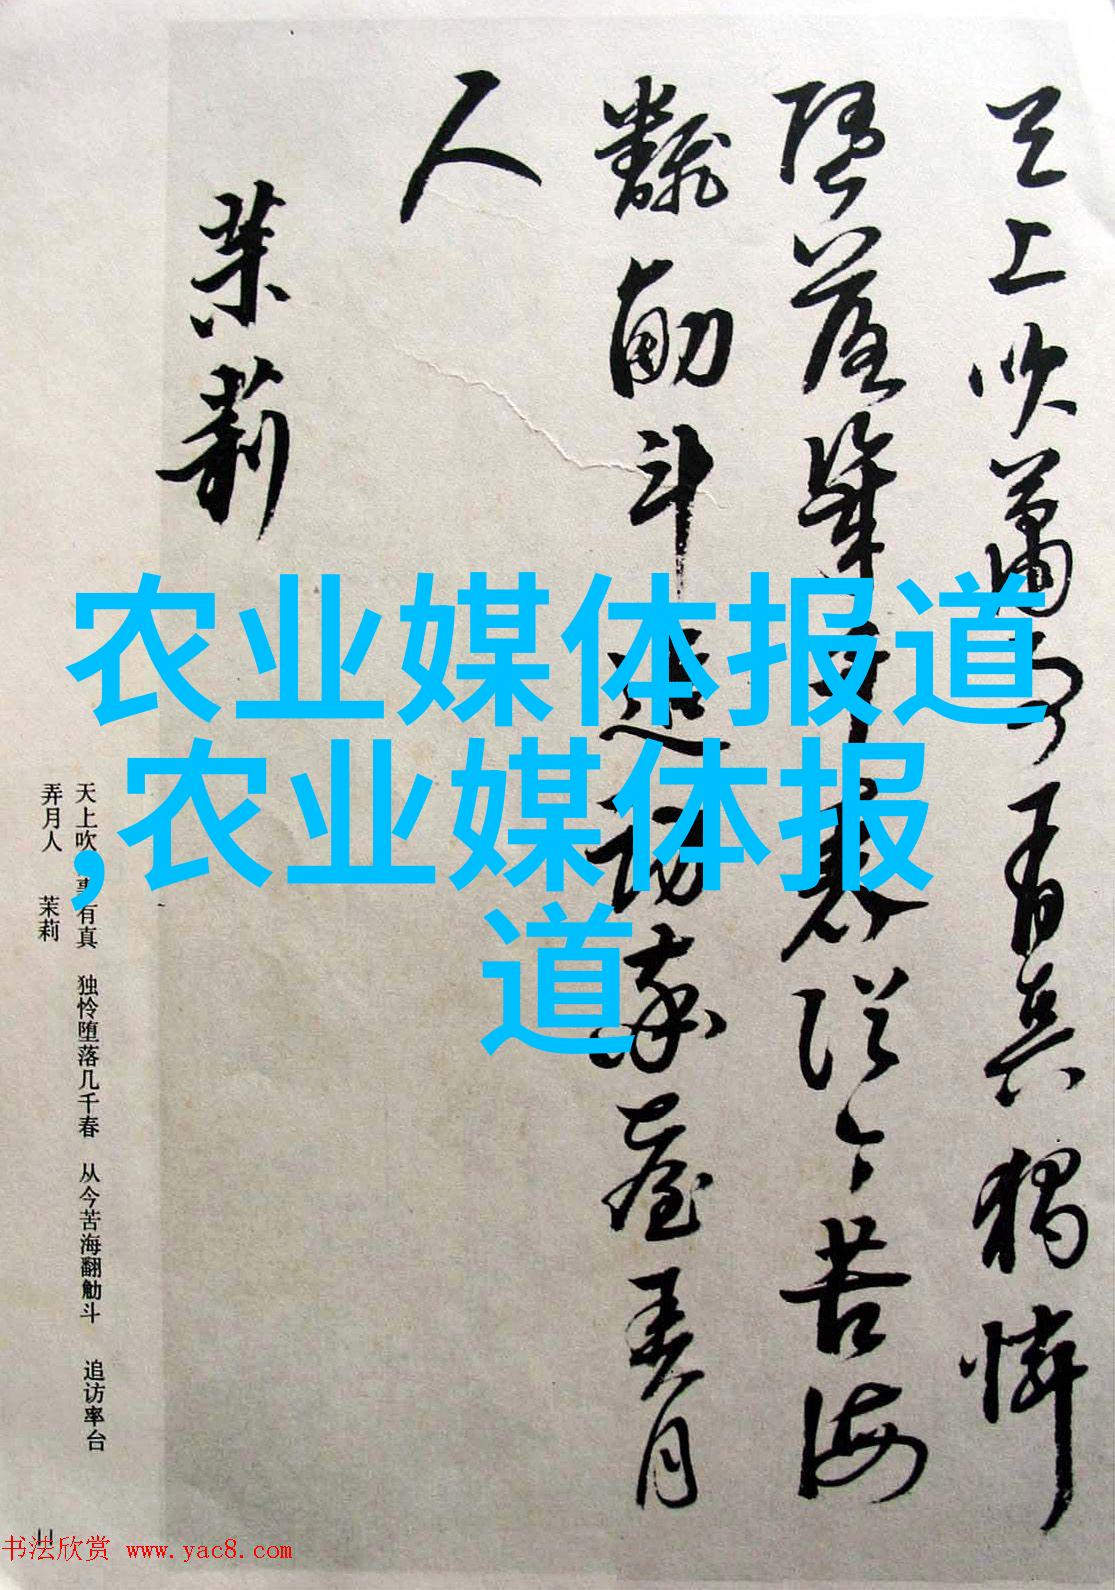 天上吹簫事有真獨憐
墮落幾千春從今苦海
翻觔斗追訪臺弄月
人
茉莉
农业媒体报道
,农业媒体报
道
天上吹事有真 独怜堕落几千春 从今苦海翻觔斗 追访率台
弄月人 茉莉
11
书法欣赏 www.yac8.com